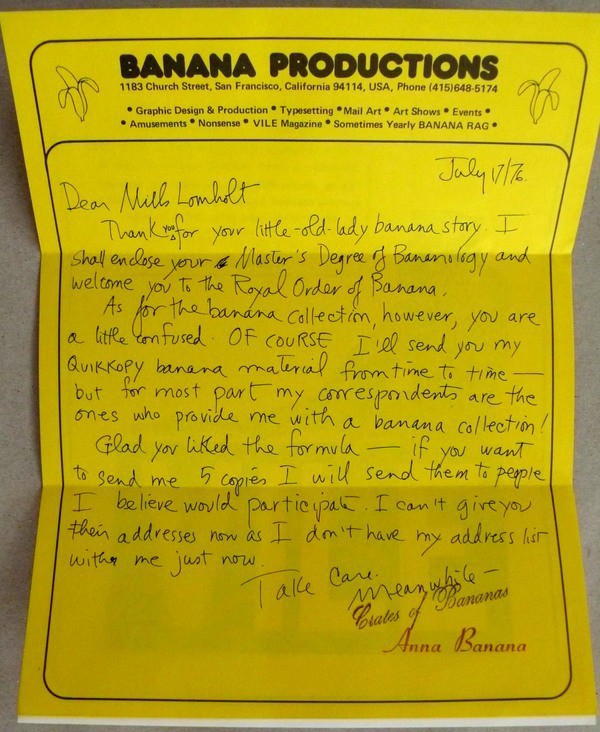 BANANA PRODUCTIONS
1183 Church Street, San Francisco, California 94114, USA, Phone (415)648-5174
• Graphic Design & Production • Typesetting • Mail Art • Art Shows • Events •
• Amusements • Nonsense • VILE Magazine • Sometimes Yearly BANANA RAG •
July 17/76.
Dear Niells Lomholt
Thank you for your little-old-lady banana story. I
shall enclose your Master's Degree of Bananology and
welcome you to the Royal Order of Banana.
As for the banana collection, however, you are
a little confused. OF COURSE I'll send you my
QUIKKOPY banana material from time to time —
but for most part my correspondents are the
ones who provide me with a banana collection!
Glad you liked the formula — if you want
to send me 5 copies I will send them to people
I believe would participate. I can't give you
their addresses now as I don't have my address list
with me just now.
Take Care. Meanwhile —
Crates of Bananas
Anna Banana